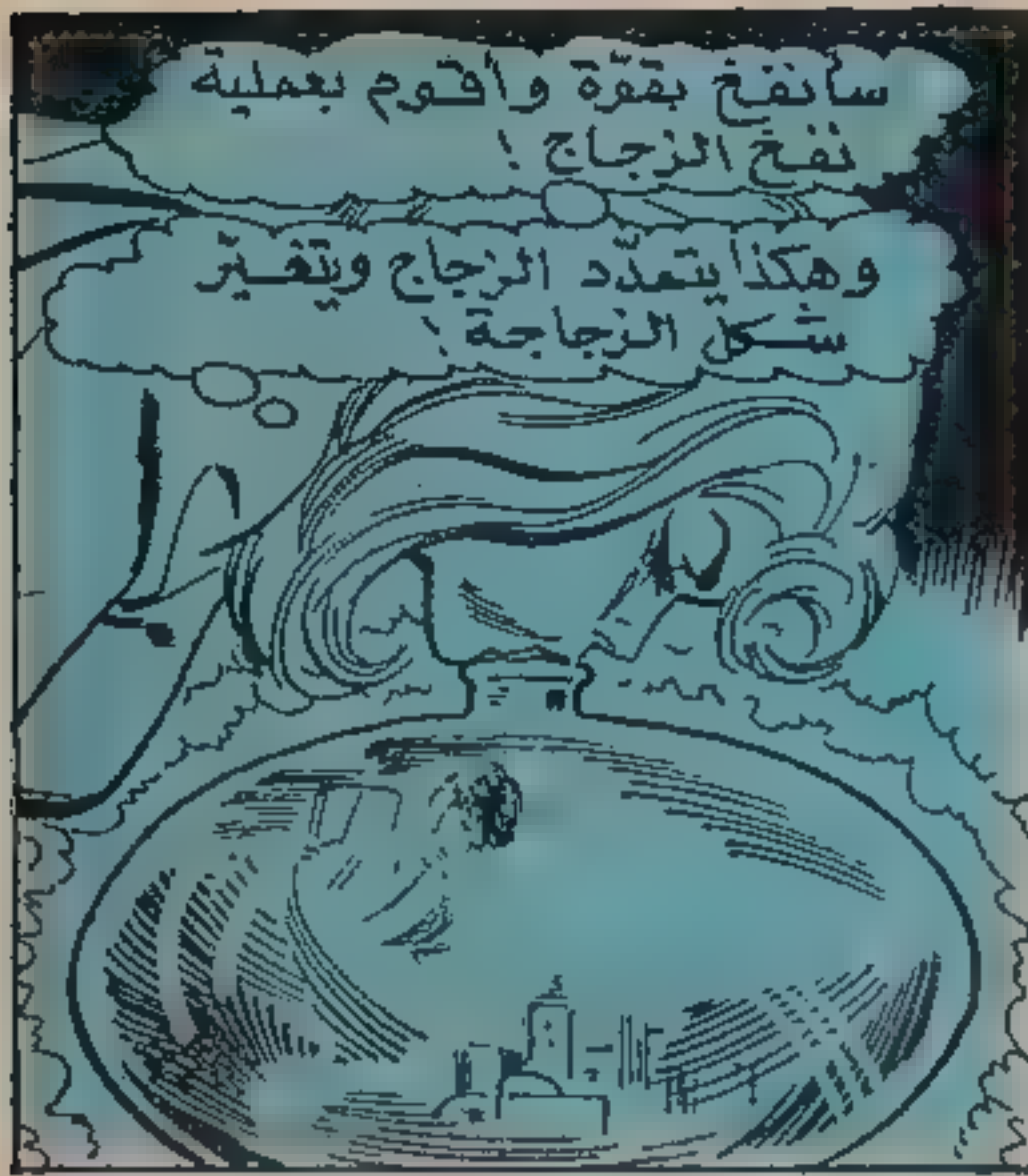 سأنفخ بقوّة وأقوم بعملية
نفخ الزجاج !
وهكذا يتمدّد الزجاج ويتغيّر
شكل الزجاجة !